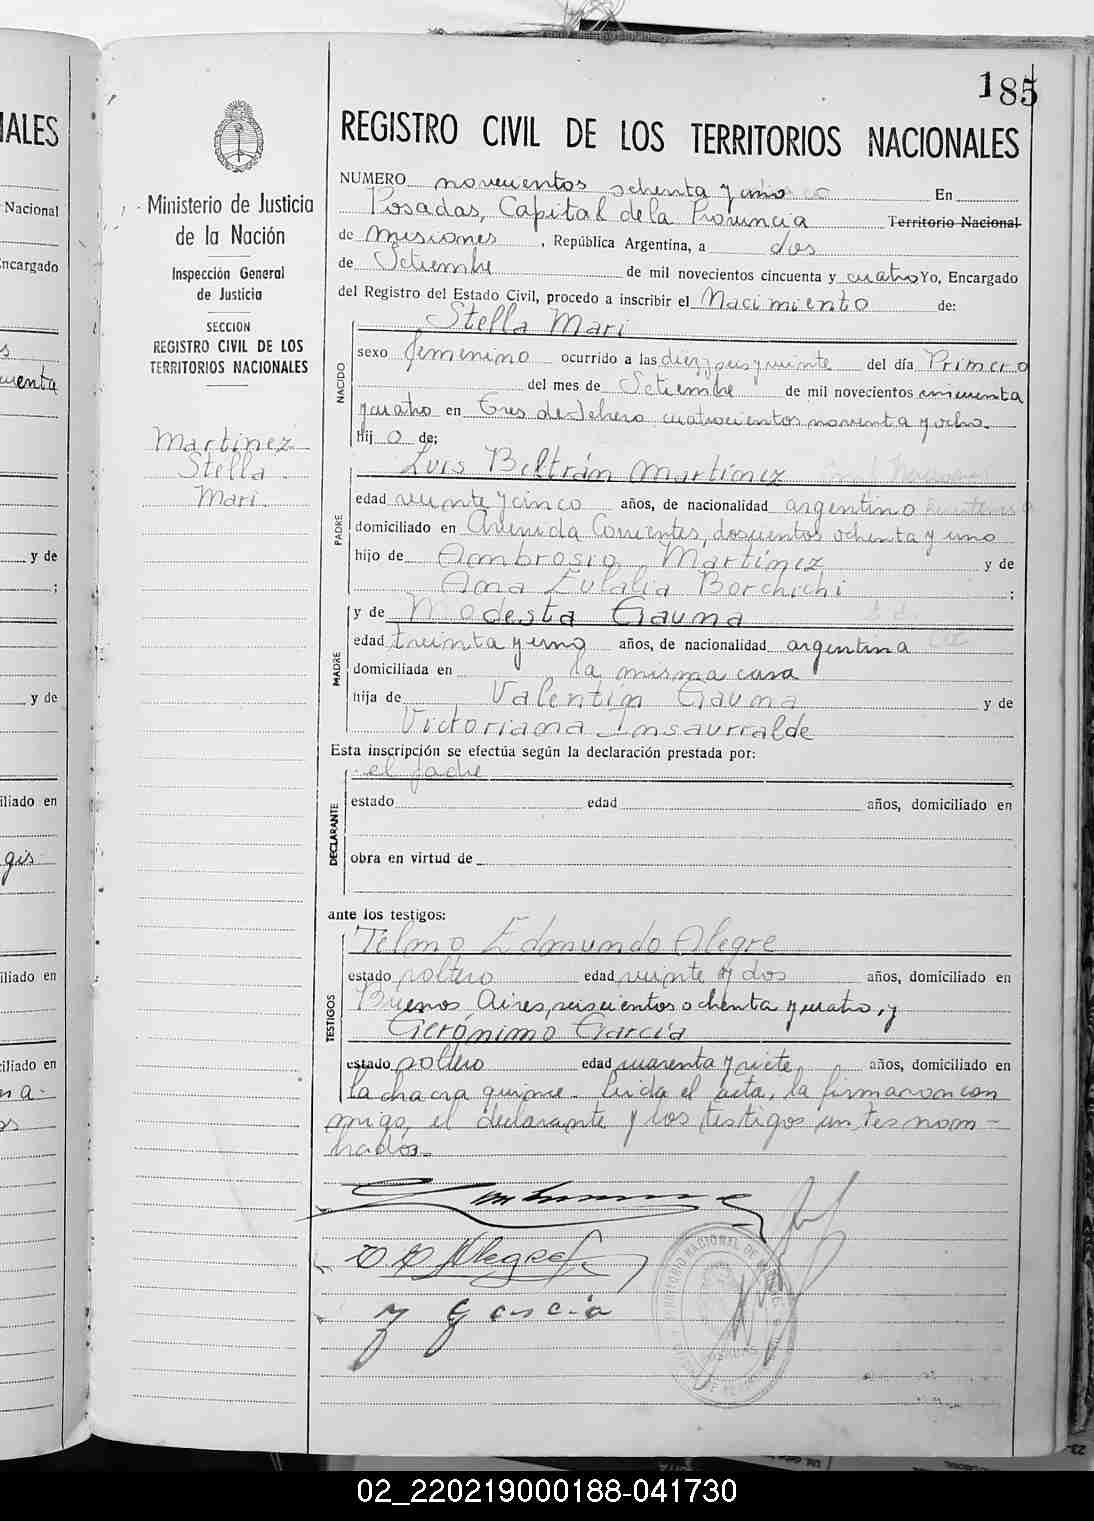 185
REGISTRO CIVIL DE LOS TERRITORIOS NACIONALES
Ministerio de Justicia
de la Nación
Inspección General
de Justicia
SECCION
REGISTRO CIVIL DE LOS
TERRITORIOS NACIONALES
Martínez
Stella
Mari.
NUMERO novecientos ochenta y uno En
Posadas, Capital de la Provincia Territorio Nacional
de Misiones, República Argentina, a dos
de Setiembre de mil novecientos cincuenta y cuatro Yo, Encargado
del Registro del Estado Civil, procedo a inscribir el Nacimiento de:
NACIDO
Stella Mari
sexo femenino ocurrido a las del día Primero
del mes de Setiembre de mil novecientos cincuenta
y cuatro en Tres de Febrero cuatrocientos noventa y ocho.
Hij a de;
PADRE
Luis Beltrán Martínez
edad veinte y cinco años, de nacionalidad argentino
domiciliado en Avenida Corrientes, doscientos ochenta y uno
hijo de Ambrosio Martínez y de
Ana Eulalia Borchichi ;
MADRE
y de Modesta Gauna
edad treinta y uno años, de nacionalidad argentina
domiciliada en la misma casa
hija de Valentín Gauna y de
Victoriana Insaurralde
Esta inscripción se efectúa según la declaración prestada por:
DECLARANTE
el padre
estado edad años, domiciliado en
obra en virtud de
ante los testigos:
TESTIGOS
Telmo Edmundo Alegre
estado soltero edad veinte y dos años, domiciliado en
Buenos Aires, seiscientos ochenta y cuatro, y
Gerónimo García
estado soltero edad cuarenta y siete años, domiciliado en
la chacra quince. Leida el acta, la firmaron con
migo, el declarante y los testigos antes nom-
brados.
Alegre
García
02_220219000188-041730